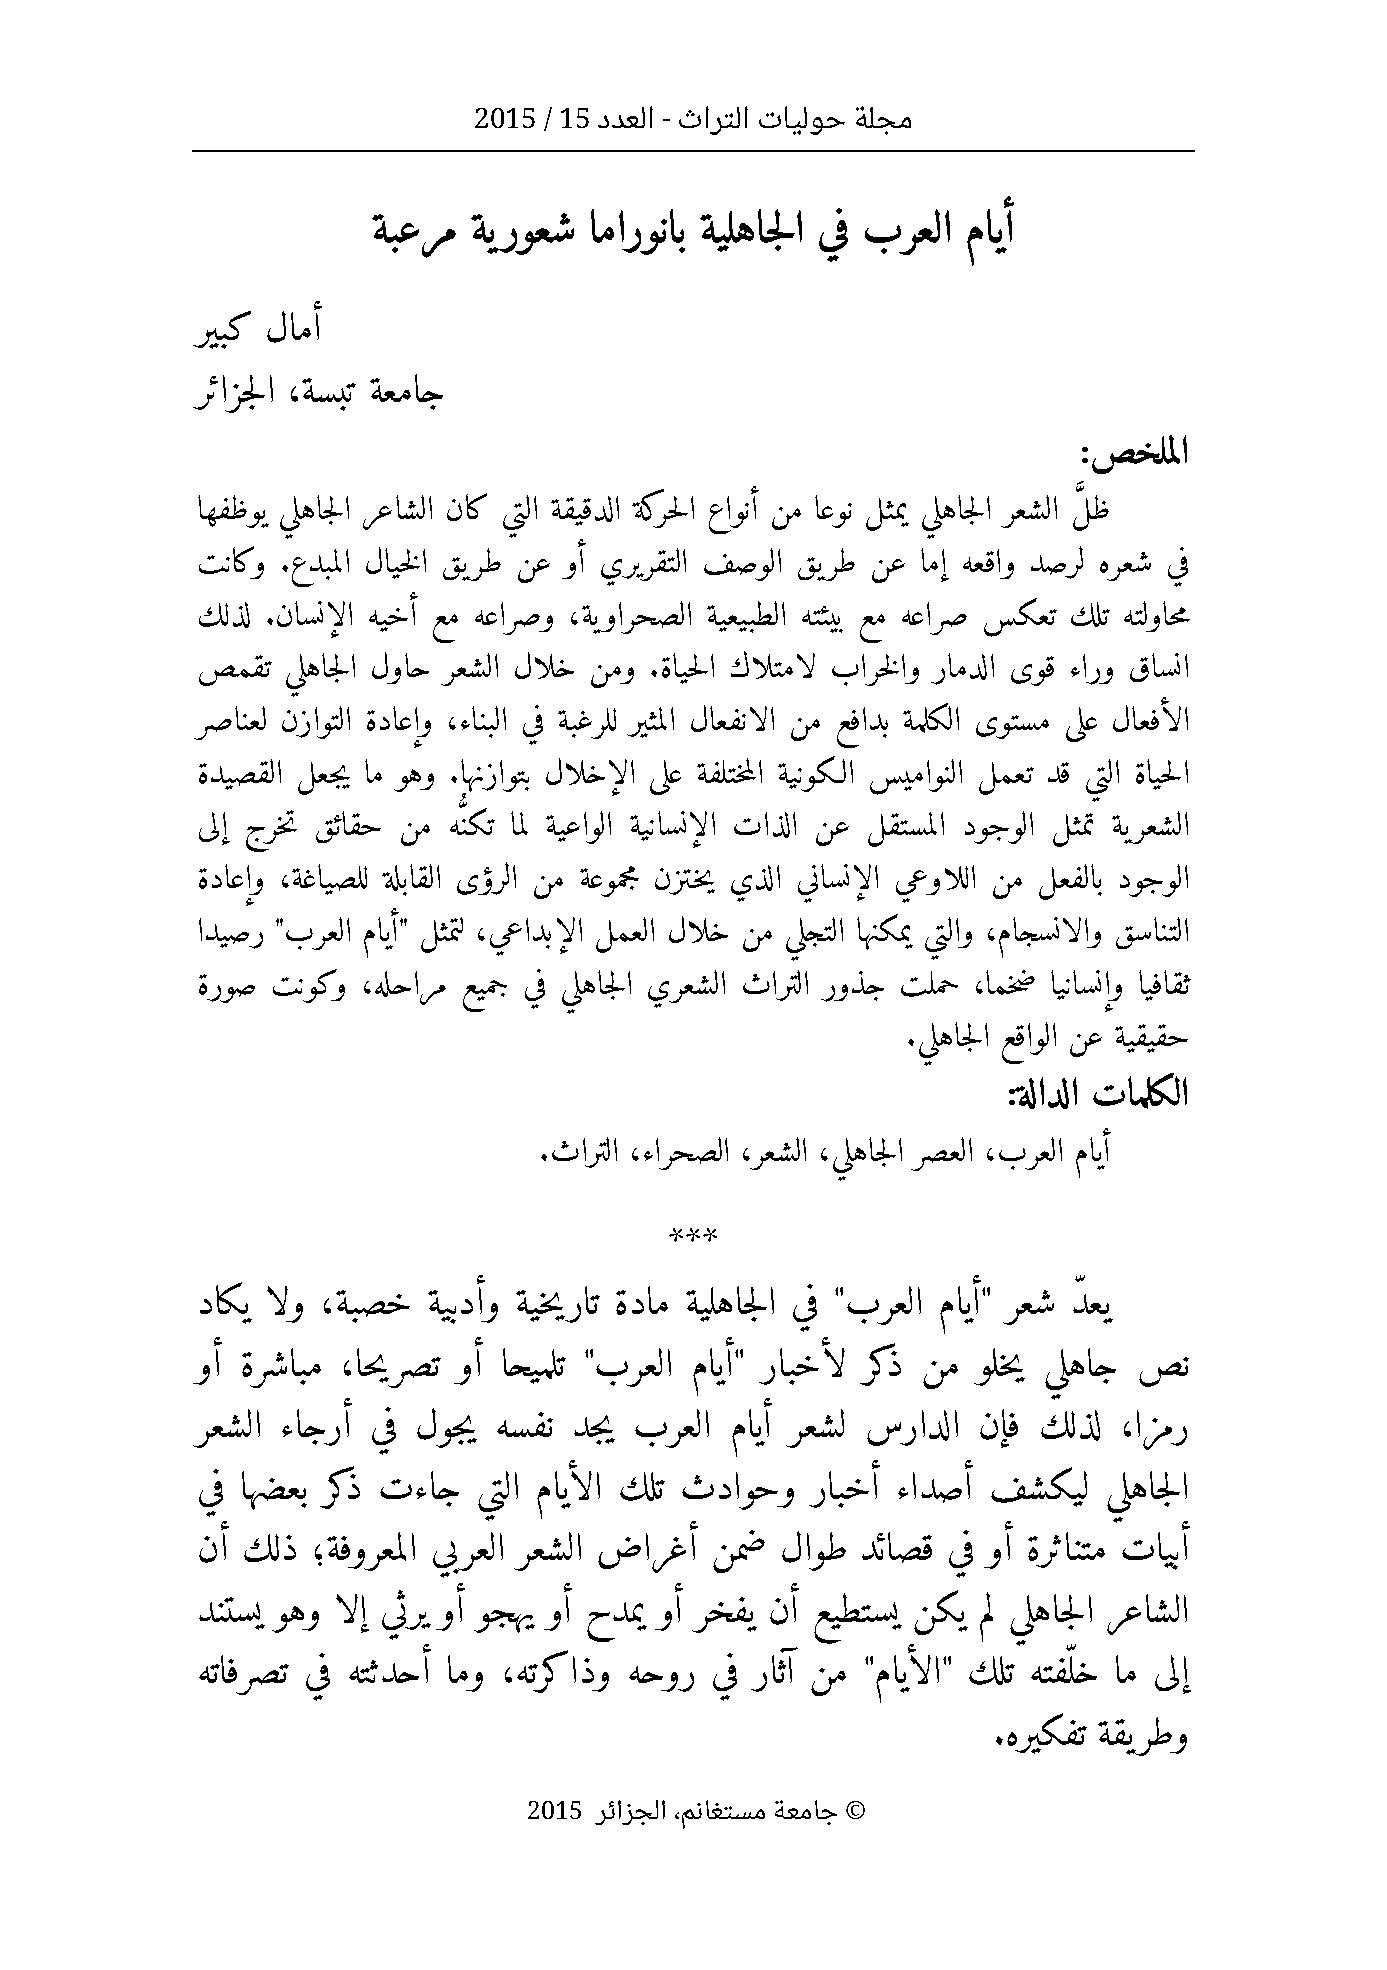 مجلة حوليات التراث - العدد 15 / 2015
أيام العرب في الجاهلية بانوراما شعورية مرعبة
أمال كبير
جامعة تبسة، الجزائر
الملخص:
ظلَّ الشعر الجاهلي يمثل نوعا من أنواع الحركة الدقيقة التي كان الشاعر الجاهلي يوظفها
في شعره لرصد واقعه إما عن طريق الوصف التقريري أو عن طريق الخيال المبدع. وكانت
محاولته تلك تعكس صراعه مع بيئته الطبيعية الصحراوية، وصراعه مع أخيه الإنسان. لذلك
انساق وراء قوى الدمار والخراب لامتلاك الحياة. ومن خلال الشعر حاول الجاهلي تقمص
الأفعال على مستوى الكلمة بدافع من الانفعال المثير للرغبة في البناء، وإعادة التوازن لعناصر
الحياة التي قد تعمل النواميس الكونية المختلفة على الإخلال بتوازنها. وهو ما يجعل القصيدة
الشعرية تمثل الوجود المستقل عن الذات الإنسانية الواعية لما تكنُّه من حقائق تخرج إلى
الوجود بالفعل من اللاوعي الإنساني الذي يختزن مجموعة من الرؤى القابلة للصياغة، وإعادة
التناسق والانسجام، والتي يمكنها التجلي من خلال العمل الإبداعي، لتمثل "أيام العرب" رصيدا
ثقافيا وإنسانيا ضخما، حملت جذور التراث الشعري الجاهلي في جميع مراحله، وكونت صورة
حقيقية عن الواقع الجاهلي.
الكلمات الدالة:
أيام العرب، العصر الجاهلي، الشعر، الصحراء، التراث.
***
يعدّ شعر "أيام العرب" في الجاهلية مادة تاريخية وأدبية خصبة، ولا يكاد
نص جاهلي يخلو من ذكر لأخبار "أيام العرب" تلميحا أو تصريحا، مباشرة أو
رمزا، لذلك فإن الدارس لشعر أيام العرب يجد نفسه يجول في أرجاء الشعر
الجاهلي ليكشف أصداء أخبار وحوادث تلك الأيام التي جاءت ذكر بعضها في
أبيات متناثرة أو في قصائد طوال ضمن أغراض الشعر العربي المعروفة؛ ذلك أن
الشاعر الجاهلي لم يكن يستطيع أن يفخر أو يمدح أو يهجو أو يرثي إلا وهو يستند
إلى ما خلّفته تلك "الأيام" من آثار في روحه وذاكرته، وما أحدثته في تصرفاته
وطريقة تفكيره.
© جامعة مستغانم، الجزائر 2015